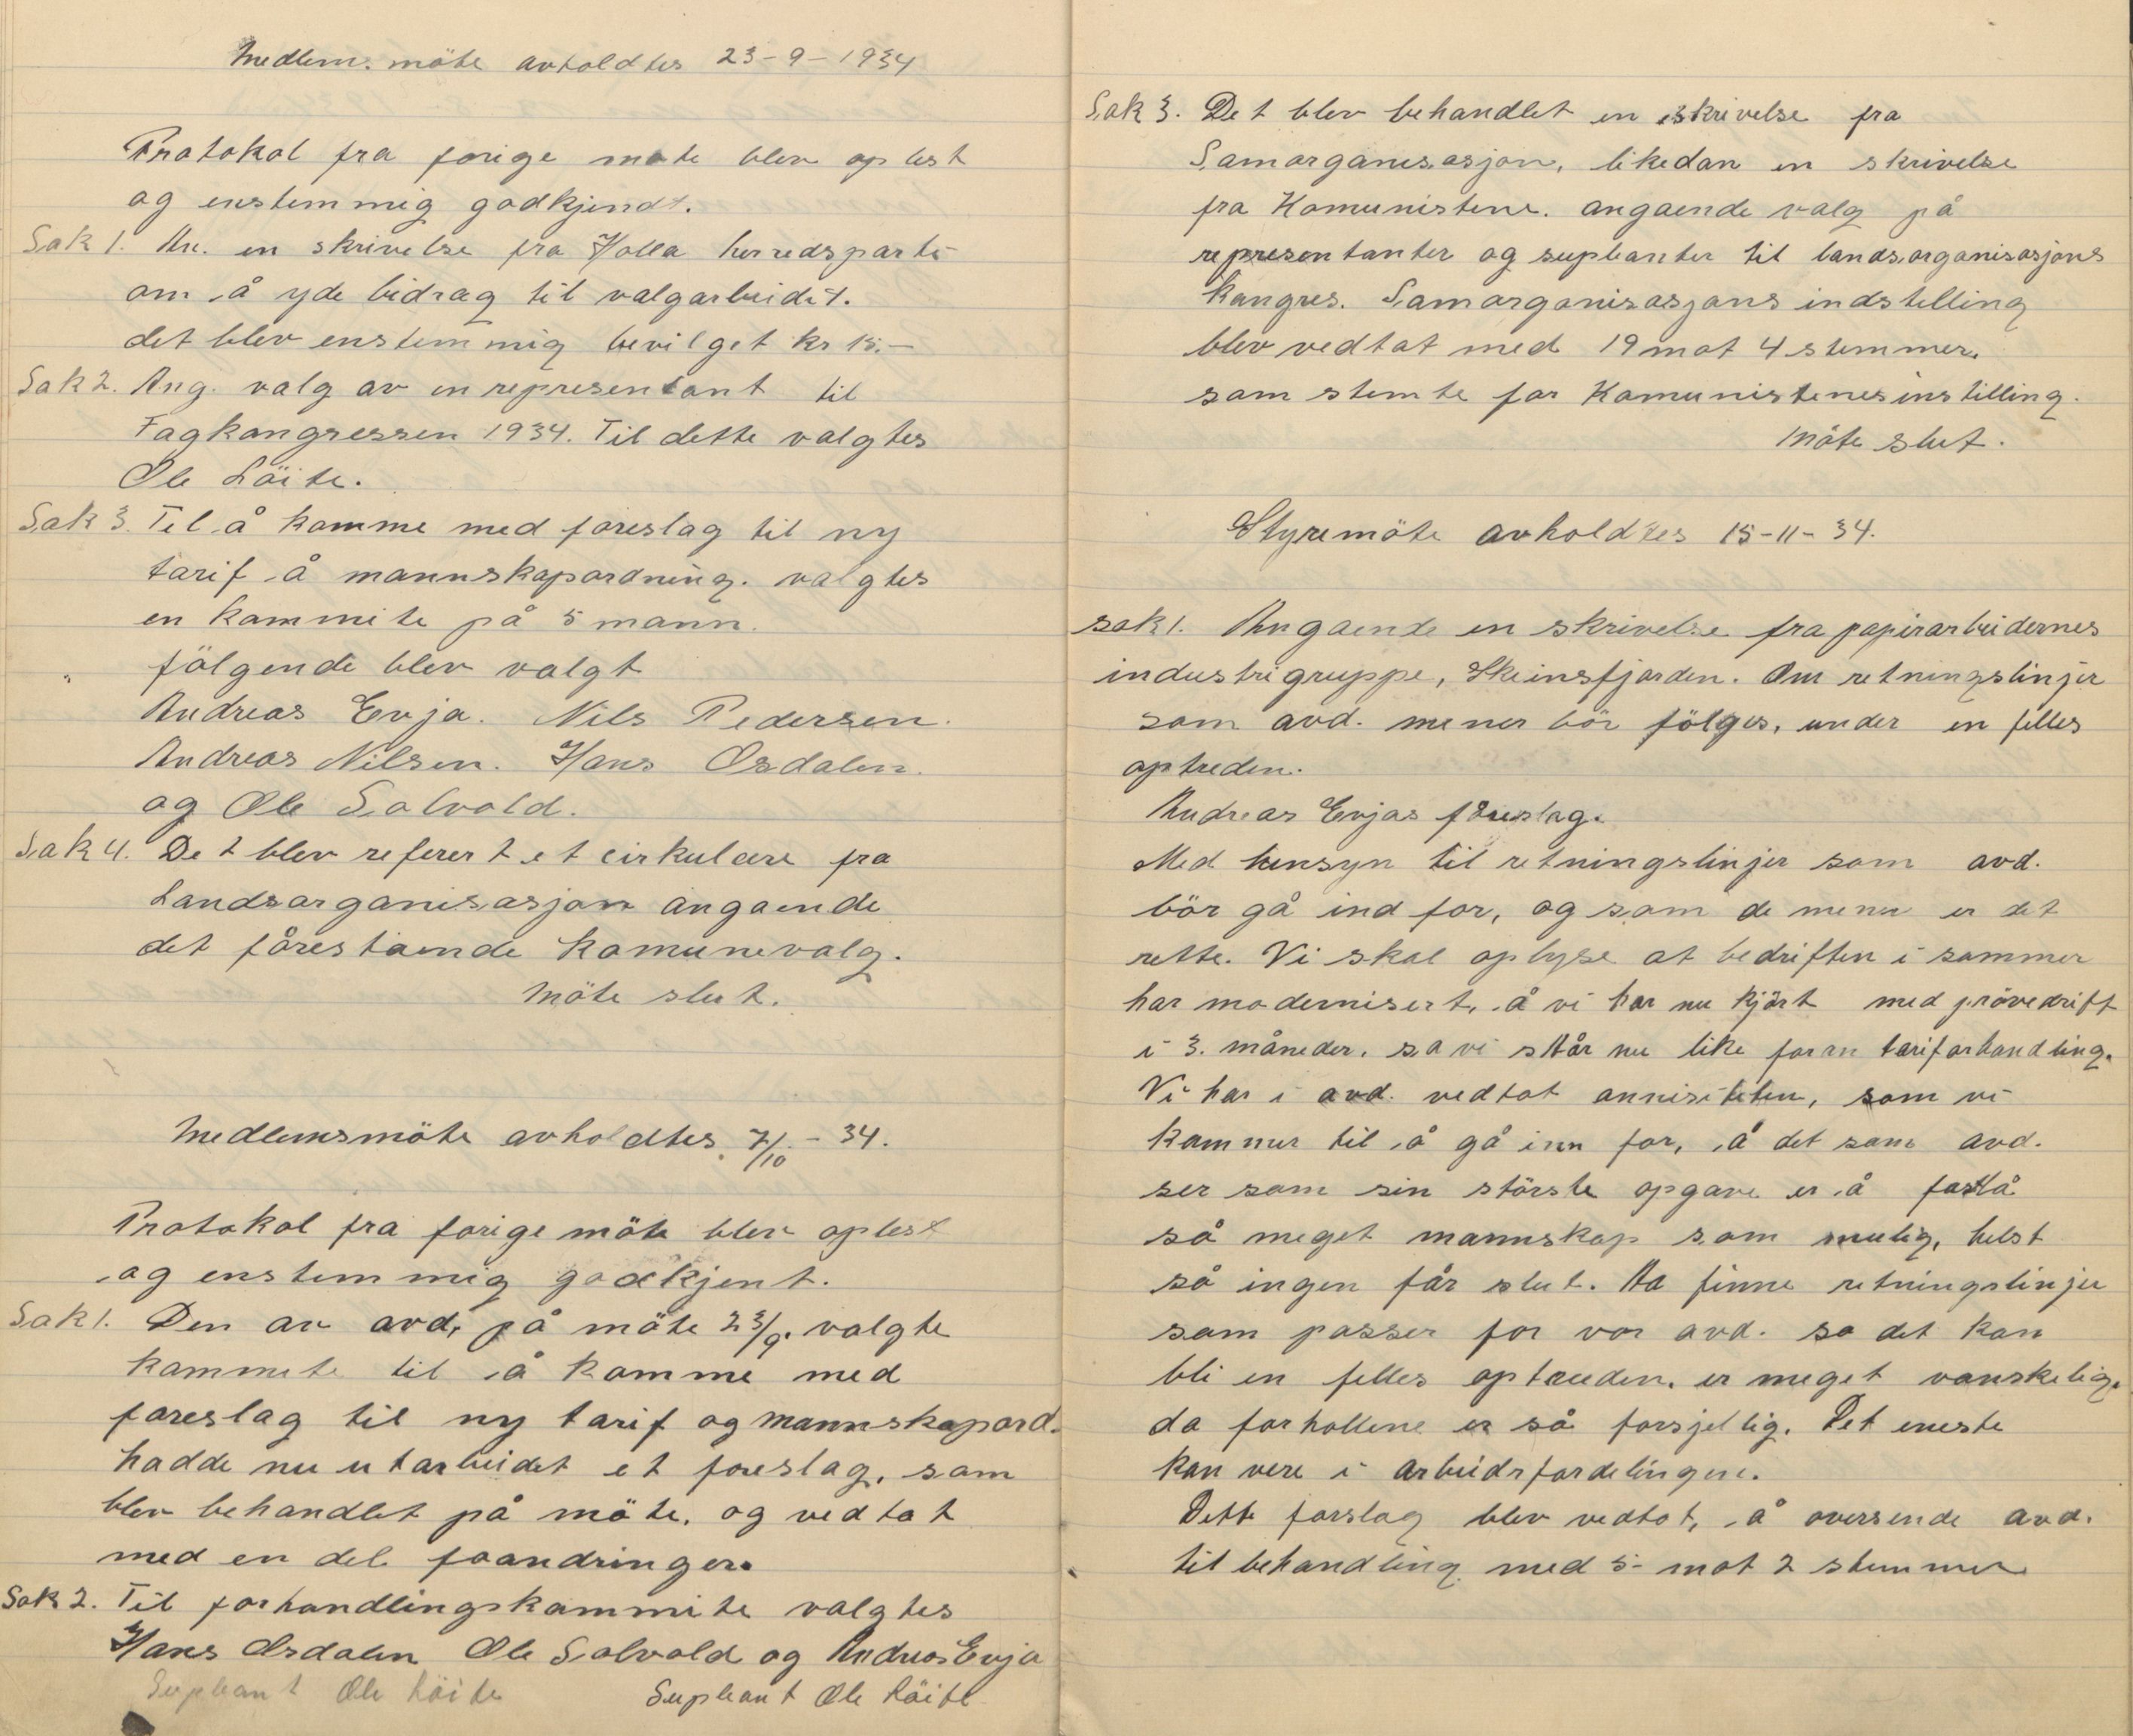 Medlem. möte avholdtes 23-9-1934
Protokol fra forige møte blev oplest
og enstemmig godkjendt.
Sak 1. An. en skrivelse fra Holla herredsparti
om å yde bidrag til valgarbeidet.
det blev enstemmig bevilget kr 15.-
Sak 2. Ang. valg av en representant til
Fagkongressen 1934. Til dette valgtes
Ole Löite.
Sak 3. Til å komme med foreslag til ny
tarif å mannskapordning. valgtes
en kommite på 5 mann.
fölgende blev valgt
Andreas Evja. Nils Pedersen.
Andreas Nilsen. Hans Osdalen.
og Ole Solvold.
Sak 4. Det blev referert et cirkulære fra
Landsorganisasjon angaende
det fårestaende komunevalg.
Möte slut.
Medlemsmöte avholdtes. 7/10 - 34.
Protokol fra forige möte blev oplest
og enstemmig godkjent.
Sak 1. Den av avd, på möte 23/9. valgte
kommite til å komme med
foreslag til ny tarif og mannskapord.
hadde nu utarbeidet et foreslag, som
blev behandlet på möte, og vedtat
med en del foandringer.
Sak 2. Til forhandlingskommite valgtes
Hans Osdalen Ole Solvold og Andreas Evja
Supleant Ole Löite Supleant Ole Löite
Sak 3. Det blev behandlet en skrivelse fra
Samorganisasjon, likedan en skrivelse
fra Komunistene. angaende valg på
representanter og supleanter til landsorganisasjons
kongres. Samorganisasjons indstelling
blev vedtat med 19 mot 4 stemmer.
som stemte for Komunistenes instilling.
Möte slut.
Styremöte avholdtes 15-11-34.
sak 1. Angaende en skrivelse fra papirarbeidernes
industrigruppe, Skeinsfjorden. Om retningslinjer
som avd. mener bör fölges, under en felles
optreden.
Andreas Evjas föreslag.
Med hensyn til retningslinjer som avd.
bör gå ind for, og som de mener er det
rette. Vi skal oplyse at bedriften i sommer
har modernisert, å vi har nu kjört med prövedrift
i 3. måneder, sa vi står nu like foran tariforhandling.
Vi har i avd. vedtat
som vi
kommer til å gå inn for, å det som avd.
ser som sin störste opgave er å
så meget mannskap som mulig, helst
så ingen får slut. Aa finne retningslinjer
som passer for vor avd. so det kan
bli en felles optreeden. er meget vanskelig.
da forhollene er så forsjellig. Det eneste
kan vere i arbeidsfordelingen.
Dette forslag blev vedtat, å oversende avd.
til behandling med 5- mot 2 stemmer